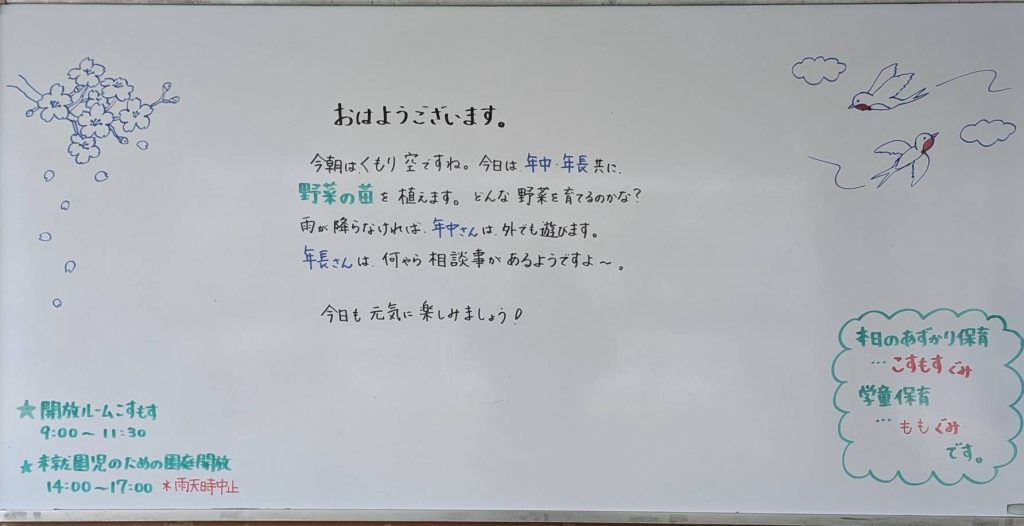 おはようございます。
今朝は、くもり空ですね。今日は、年中・年長共に、
野菜の苗を植えます。どんな野菜を育てるのかな?
雨が降らなければ、年中さんは、外でも遊びます。
年長さんは、何やら相談事があるようですよ〜。
今日も元気に楽しみましょう!
★開放ルームこすもす
9:00〜11:30
★未就園児のための園庭開放
14:00〜17:00 *雨天時中止
本日のあずかり保育
…こすもすぐみ
学童保育
…ももぐみ
です。